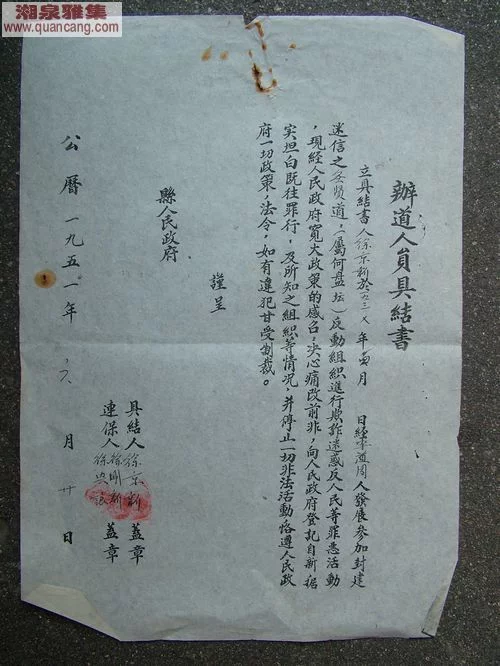 湘泉雅集
www.quancang.com
辦道人員具結書
立具結書人徐京新於 年 月 日經 人發展參加封建
迷信之 道,(屬何盘坛)反動組織進行欺詐迷惑反人民等罪恶活動
,現經人民政府寬大政策的感召,决心痛改前非,向人民政府登記自新据
实坦白既往罪行,及所知之組織等情况,并停止一切非法活動恪遵人民政
府一切政策,法令,如有違犯甘受制裁。
謹呈
縣人民政府
具結人徐京新 蓋章
連保人徐剛新 徐 蓋章
公曆一九五一年 六 月 廿 日